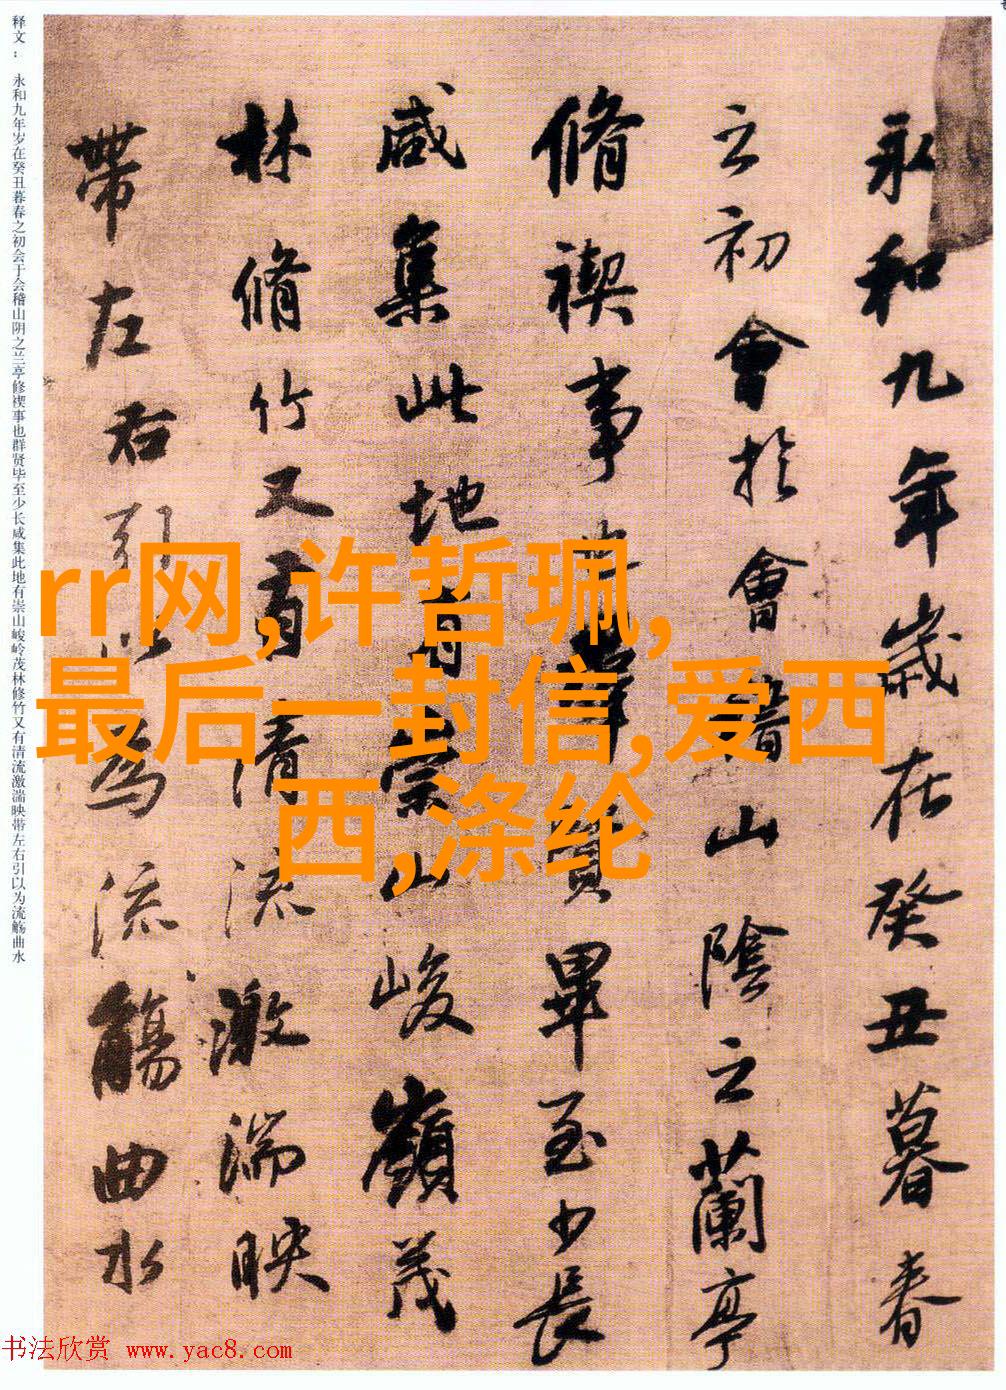 永和九年歲在癸丑暮春
之初會於會稽山陰之蘭亭
脩禊事也羣賢畢至少長
咸集此地有崇山峻嶺茂
林脩竹又有清流激湍映
帶左右引以為流觴曲水
释文： 永和九年岁在癸丑暮春之初会于会稽山阴之兰亭修禊事也群贤毕至少长咸集此地有崇山峻岭茂林修竹又有清流激湍映带左右引以为流觞曲水
rr网,许哲珮,
最后一封信,爱西
西,涤纶
书法欣赏 www.yac8.com